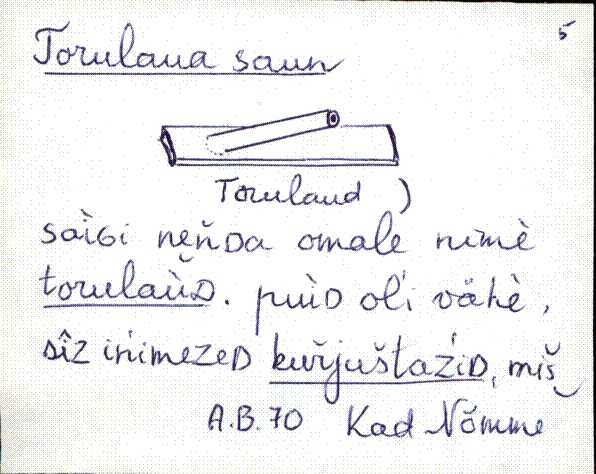 5
Torulaua saun
Torulaud )
saìGi neňDa omale nimè
torulaùD. puùD oli vähè,
sîz inimezeD kuřjuštaźiD, miš
A.B.70 Kad Nõmme